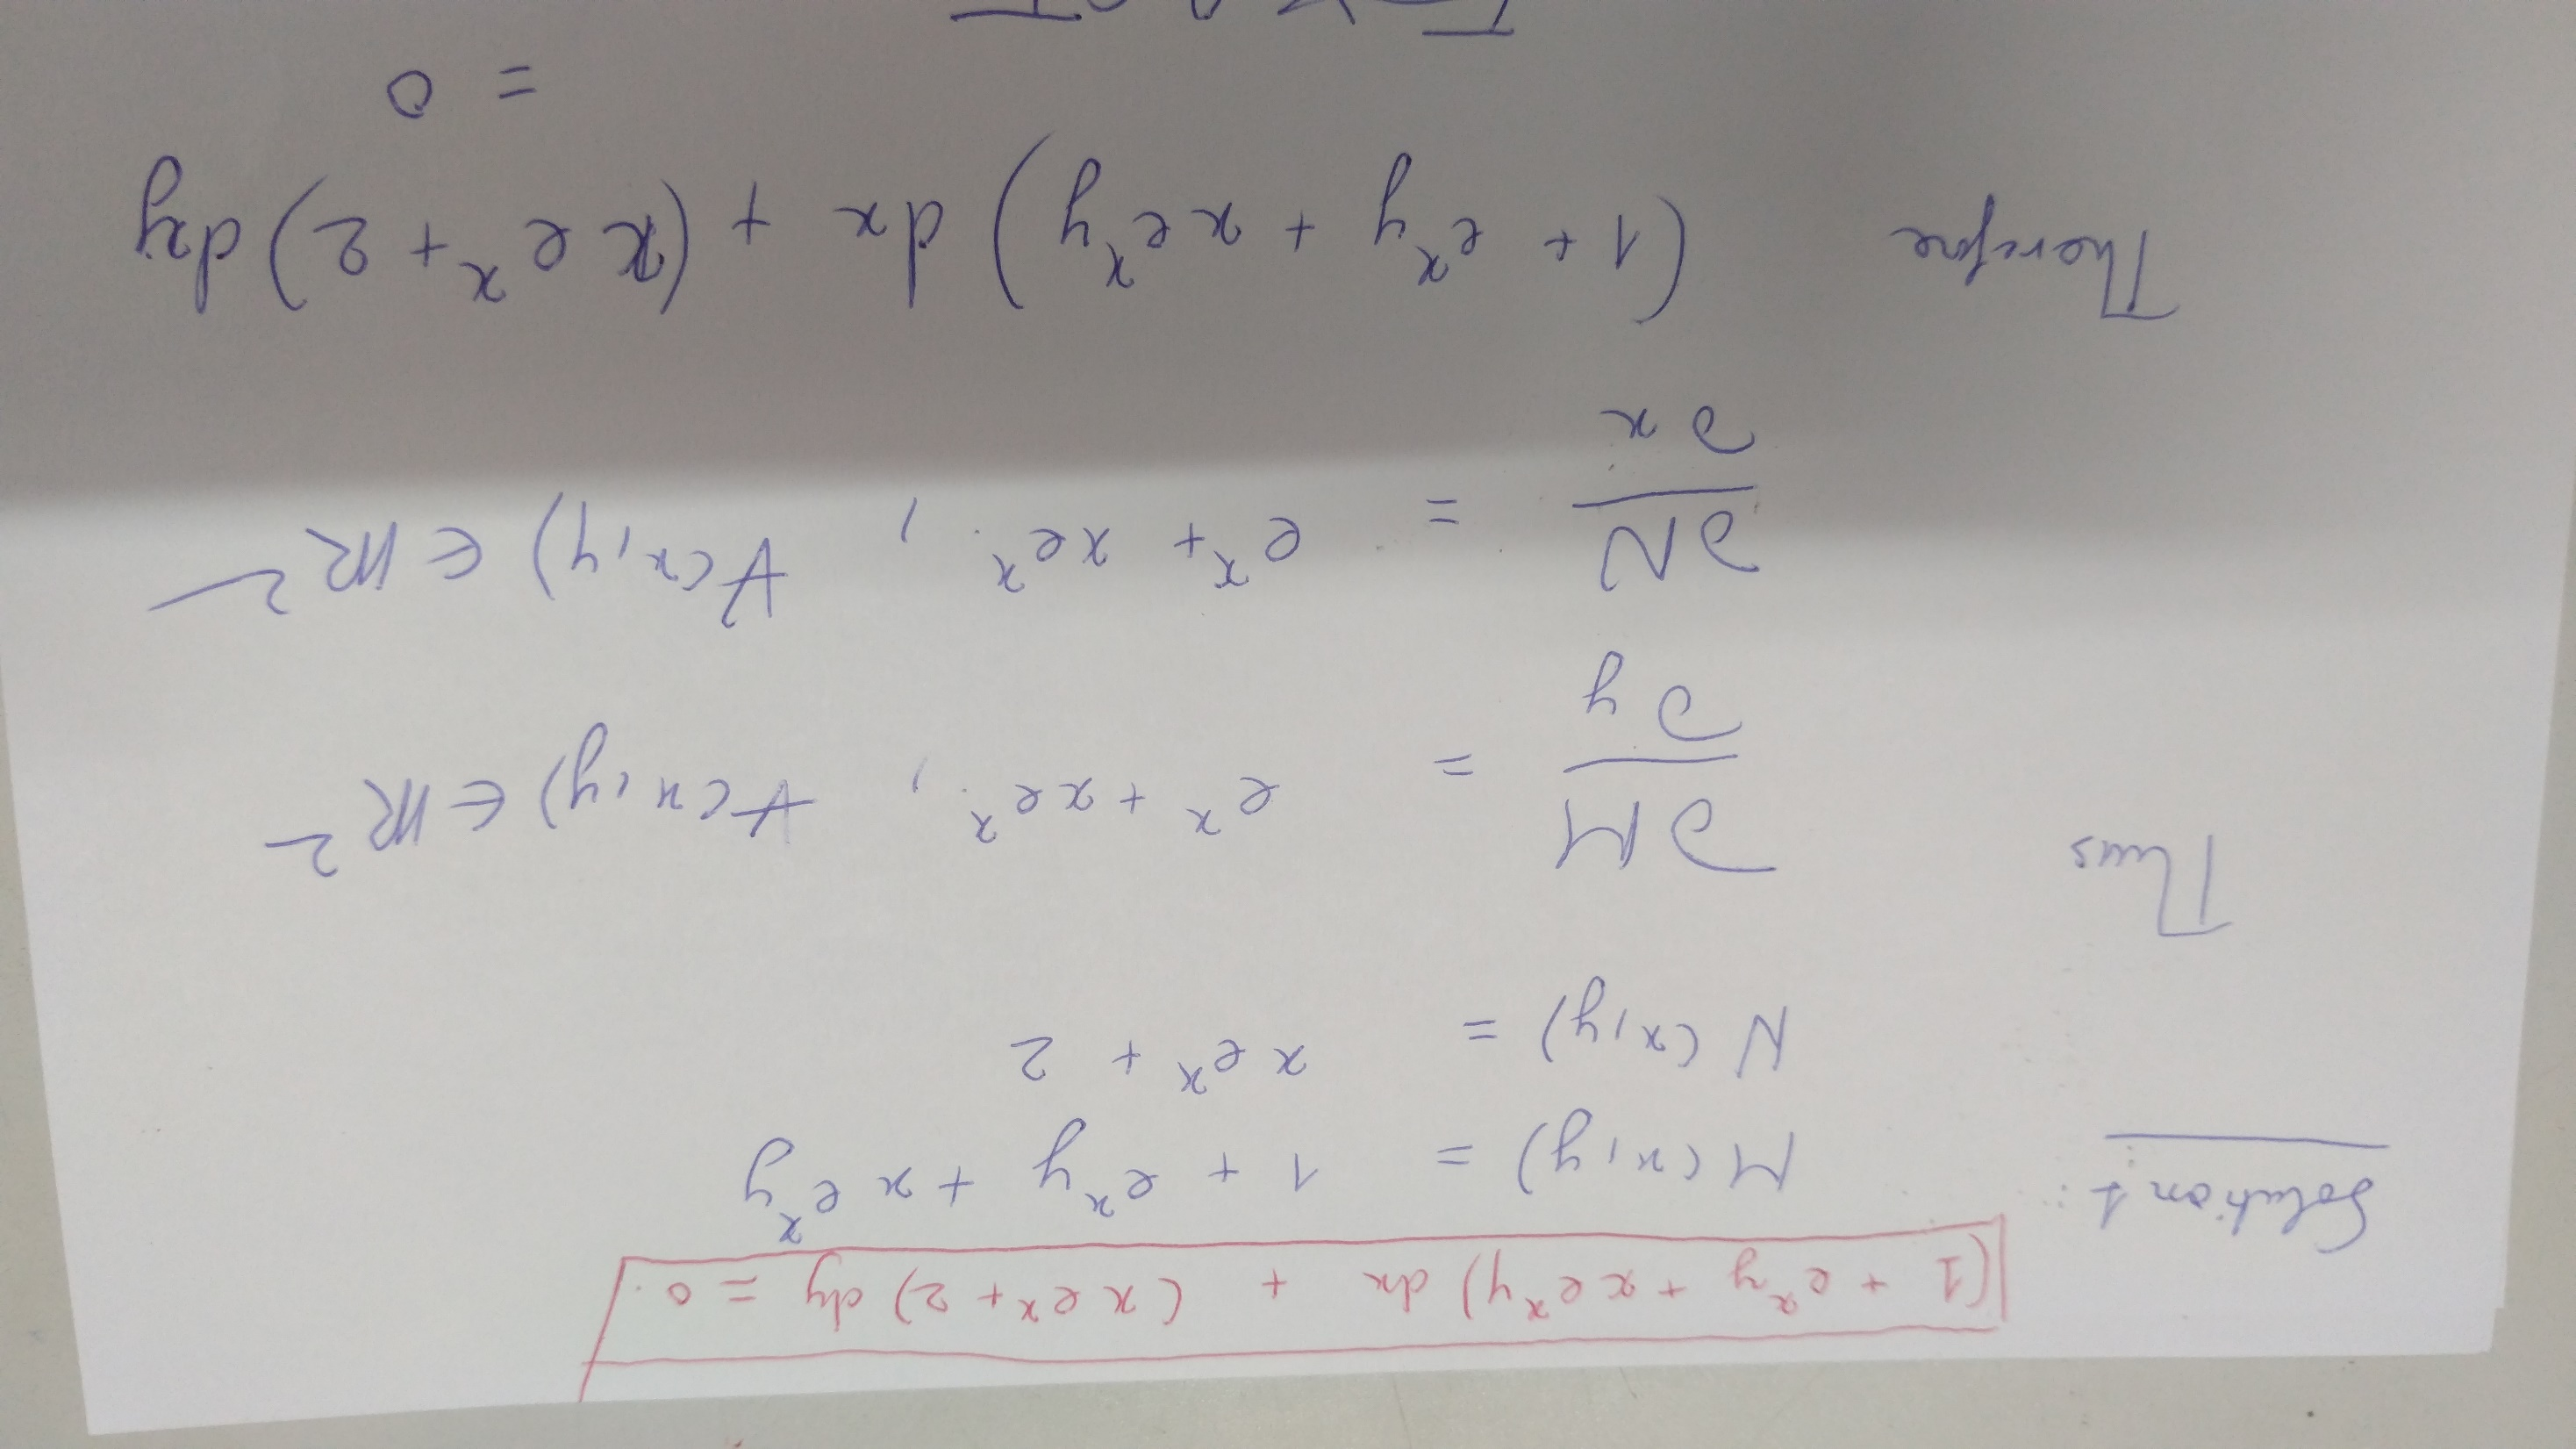 (1 + eˣy + xeˣy) dx + (xeˣ + 2) dy = 0.
Solution 1: M(x,y) = 1 + eˣy + xeˣy
N(x,y) = xeˣ + 2
Thus ∂M/∂y = eˣ + xeˣ, ∀(x,y) ∈ ℝ²
∂N/∂x = eˣ + xeˣ, ∀(x,y) ∈ ℝ²
Therefore (1 + eˣy + xeˣy) dx + (xeˣ + 2) dy
= 0